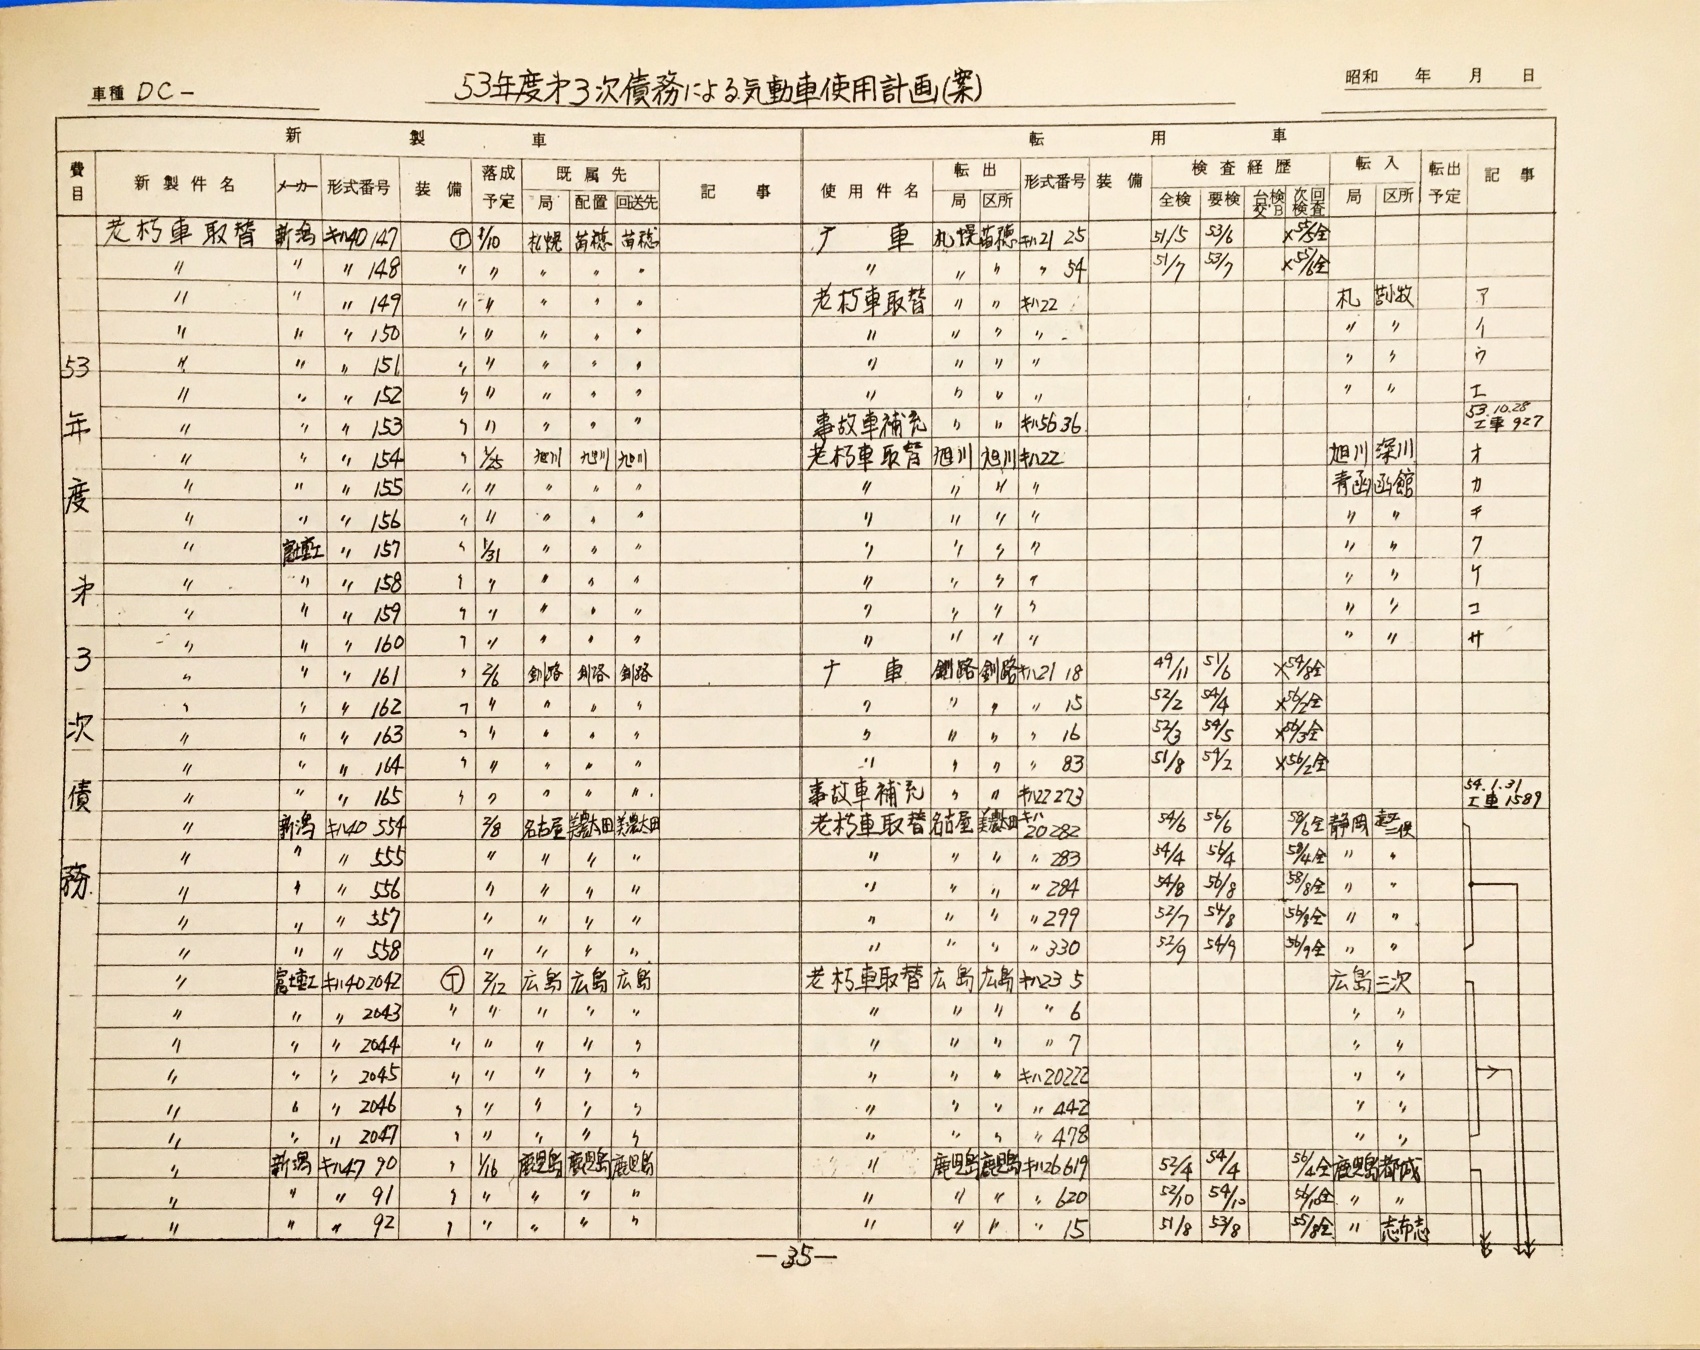 車種 DC-
53年度第3次債務による気動車使用計画(案)
昭和 年 月 日
新 製 車 転 用 車
費目 新製件名 メーカー 形式番号 装備 落成予定 既属先 局 配置 回送先 記事 使用件名 転出 局 区所 形式番号 装備 検査経歴 全検 要検 台検交B 次回検査 転入 局 区所 転出予定 記事
53年度第3次債務
老朽車取替 新潟 キハ40 147 Ⓣ 1/10 札幌 苗穂 苗穂 ナ 車 札幌 苗穂 キハ21 25 51/5 53/6 ×55/5全
〃 〃 〃 148 〃 〃 〃 〃 〃 〃 〃 〃 〃 54 51/7 53/7 ×55/6全
〃 〃 〃 149 〃 〃 〃 〃 〃 老朽車取替 〃 〃 キハ22 札 苫小牧 ア
〃 〃 〃 150 〃 〃 〃 〃 〃 〃 〃 〃 〃 〃 〃 イ
〃 〃 〃 151 〃 〃 〃 〃 〃 〃 〃 〃 〃 〃 〃 ウ
〃 〃 〃 152 〃 〃 〃 〃 〃 〃 〃 〃 〃 〃 〃 エ
〃 〃 〃 153 〃 〃 〃 〃 〃 事故車補充 〃 〃 キハ56 36 53.10.28 工車927
〃 〃 〃 154 〃 1/25 旭川 旭川 旭川 老朽車取替 旭川 旭川 キハ22 旭川 深川 オ
〃 〃 〃 155 〃 〃 〃 〃 〃 〃 〃 〃 〃 青函 函館 カ
〃 〃 〃 156 〃 〃 〃 〃 〃 〃 〃 〃 〃 〃 〃 キ
〃 富士重工 〃 157 〃 1/31 〃 〃 〃 〃 〃 〃 〃 〃 〃 ク
〃 〃 〃 158 〃 〃 〃 〃 〃 〃 〃 〃 〃 〃 〃 ケ
〃 〃 〃 159 〃 〃 〃 〃 〃 〃 〃 〃 〃 〃 〃 コ
〃 〃 〃 160 〃 〃 〃 〃 〃 〃 〃 〃 〃 〃 〃 サ
〃 〃 〃 161 〃 2/6 釧路 釧路 釧路 ナ 車 釧路 釧路 キハ21 18 49/11 51/6 ×54/8全
〃 〃 〃 162 〃 〃 〃 〃 〃 〃 〃 〃 〃 15 52/2 54/4 ×56/2全
〃 〃 〃 163 〃 〃 〃 〃 〃 〃 〃 〃 〃 16 52/3 54/5 ×56/3全
〃 〃 〃 164 〃 〃 〃 〃 〃 〃 〃 〃 83 51/8 54/2 ×56/2全
〃 〃 〃 165 〃 〃 〃 〃 〃 事故車補充 〃 〃 キハ22 273 54.1.31 工車1589
〃 新潟 キハ40 554 2/8 名古屋 美濃太田 美濃太田 老朽車取替 名古屋 美濃太田 キハ20 282 54/6 56/6 58/6全 静岡
〃 〃 〃 555 〃 〃 〃 〃 〃 〃 〃 〃 283 54/4 56/4 58/4全 〃 〃
〃 〃 〃 556 〃 〃 〃 〃 〃 〃 〃 〃 284 54/8 56/8 58/8全 〃 〃
〃 〃 〃 557 〃 〃 〃 〃 〃 〃 〃 〃 299 52/7 54/8 56/8全 〃 〃
〃 〃 〃 558 〃 〃 〃 〃 〃 〃 〃 〃 330 52/9 54/9 56/9全 〃 〃
〃 富士重工 キハ40 2042 Ⓣ 2/12 広島 広島 広島 老朽車取替 広島 広島 キハ23 5 広島 三次
〃 〃 〃 2043 〃 〃 〃 〃 〃 〃 〃 〃 〃 6 〃 〃
〃 〃 〃 2044 〃 〃 〃 〃 〃 〃 〃 〃 〃 7 〃 〃
〃 〃 〃 2045 〃 〃 〃 〃 〃 〃 〃 〃 キハ20 222 〃 〃
〃 〃 〃 2046 〃 〃 〃 〃 〃 〃 〃 〃 〃 442 〃 〃
〃 〃 〃 2047 〃 〃 〃 〃 〃 〃 〃 〃 〃 478 〃 〃
〃 新潟 キハ47 90 〃 1/16 鹿児島 鹿児島 鹿児島 〃 鹿児島 鹿児島 キハ26 619 52/4 54/4 56/4全 鹿児島 都城
〃 〃 〃 91 〃 〃 〃 〃 〃 〃 〃 〃 〃 620 52/10 54/10 56/10全 〃 〃
〃 〃 〃 92 〃 〃 〃 〃 〃 〃 〃 〃 〃 15 51/8 53/8 55/8全 〃 志布志
—35—